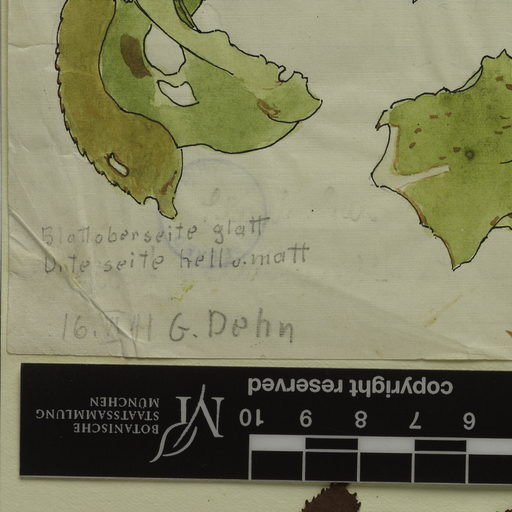 Blattoberseite glatt
Unterseite hell u. matt
G. Dehn
copyright reserved
10 9 8 7 6
BOTANISCHE
STAATSSAMMLUNG
MÜNCHEN